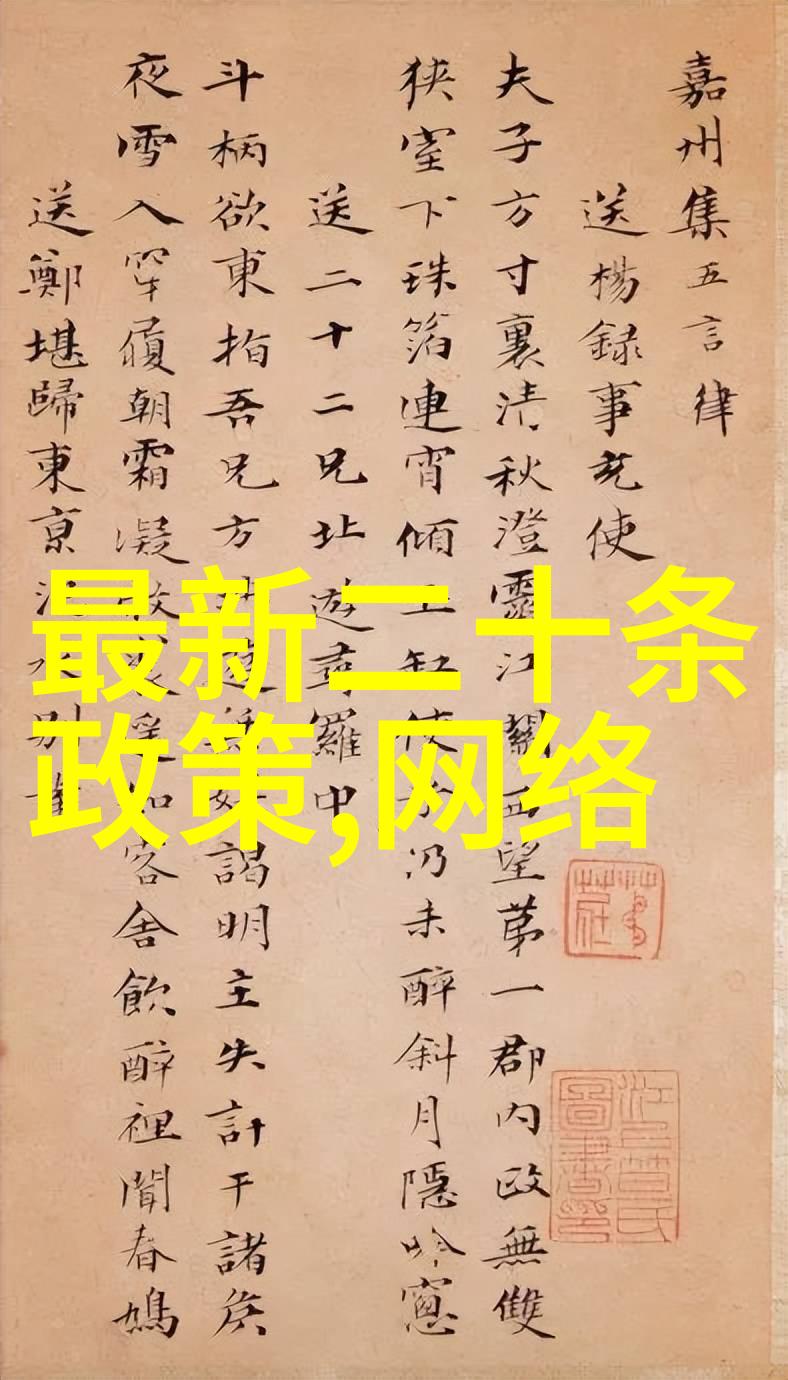 嘉州集五言律
送楊録事充使
夫子方寸裏清秋澄霽江關西望第一郡内政無雙
狹室下珠箔連宵傾玉缸使乎仍未醉斜月隱吟窻
送二十二兄北遊尋羅中
斗柄欲東指吾兄方遊無謁明主失計干諸侯
夜雪入穿履朝霜凝裘遙知客舍飲醉裡聞春鳩
送鄭堪歸東京水別
最新二十条
政策,网络